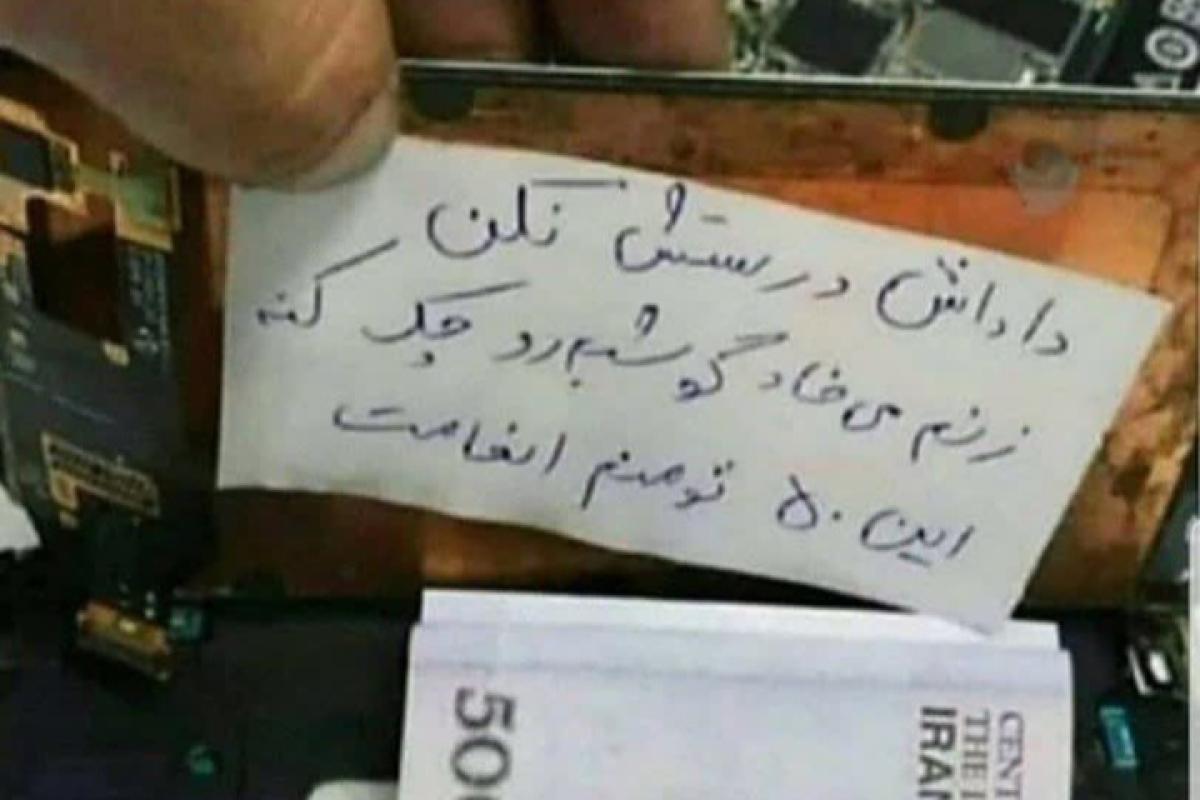 داداش درستش نکن
زنم می خاد گوشیم رو چک کنه
این ۵۰ تومنم انعامت
500
CENT
THE I
IRAN